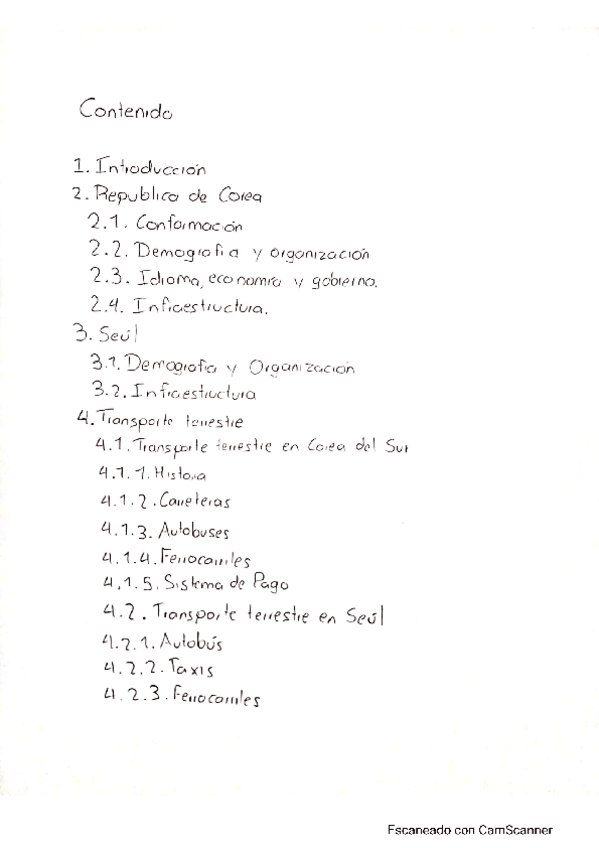 Contenido
1. Introducción
2. Republica de Corea
2.1. Conformación
2.2. Demografia y organización
2.3. Idioma, economia y gobierno.
2.4. Infraestructura.
3. Seúl
3.1. Demografia y Organización
3.2. Infraestructura
4. Transporte terrestre
4.1. Transporte terrestre en Corea del Sur
4.1.1. Historia
4.1.2. Carreteras
4.1.3. Autobuses
4.1.4. Ferrocarriles
4.1.5. Sistema de Pago
4.2. Transporte terrestre en Seúl
4.2.1. Autobús
4.2.2. Taxis
4.2.3. Ferrocarriles
Escaneado con CamScanner